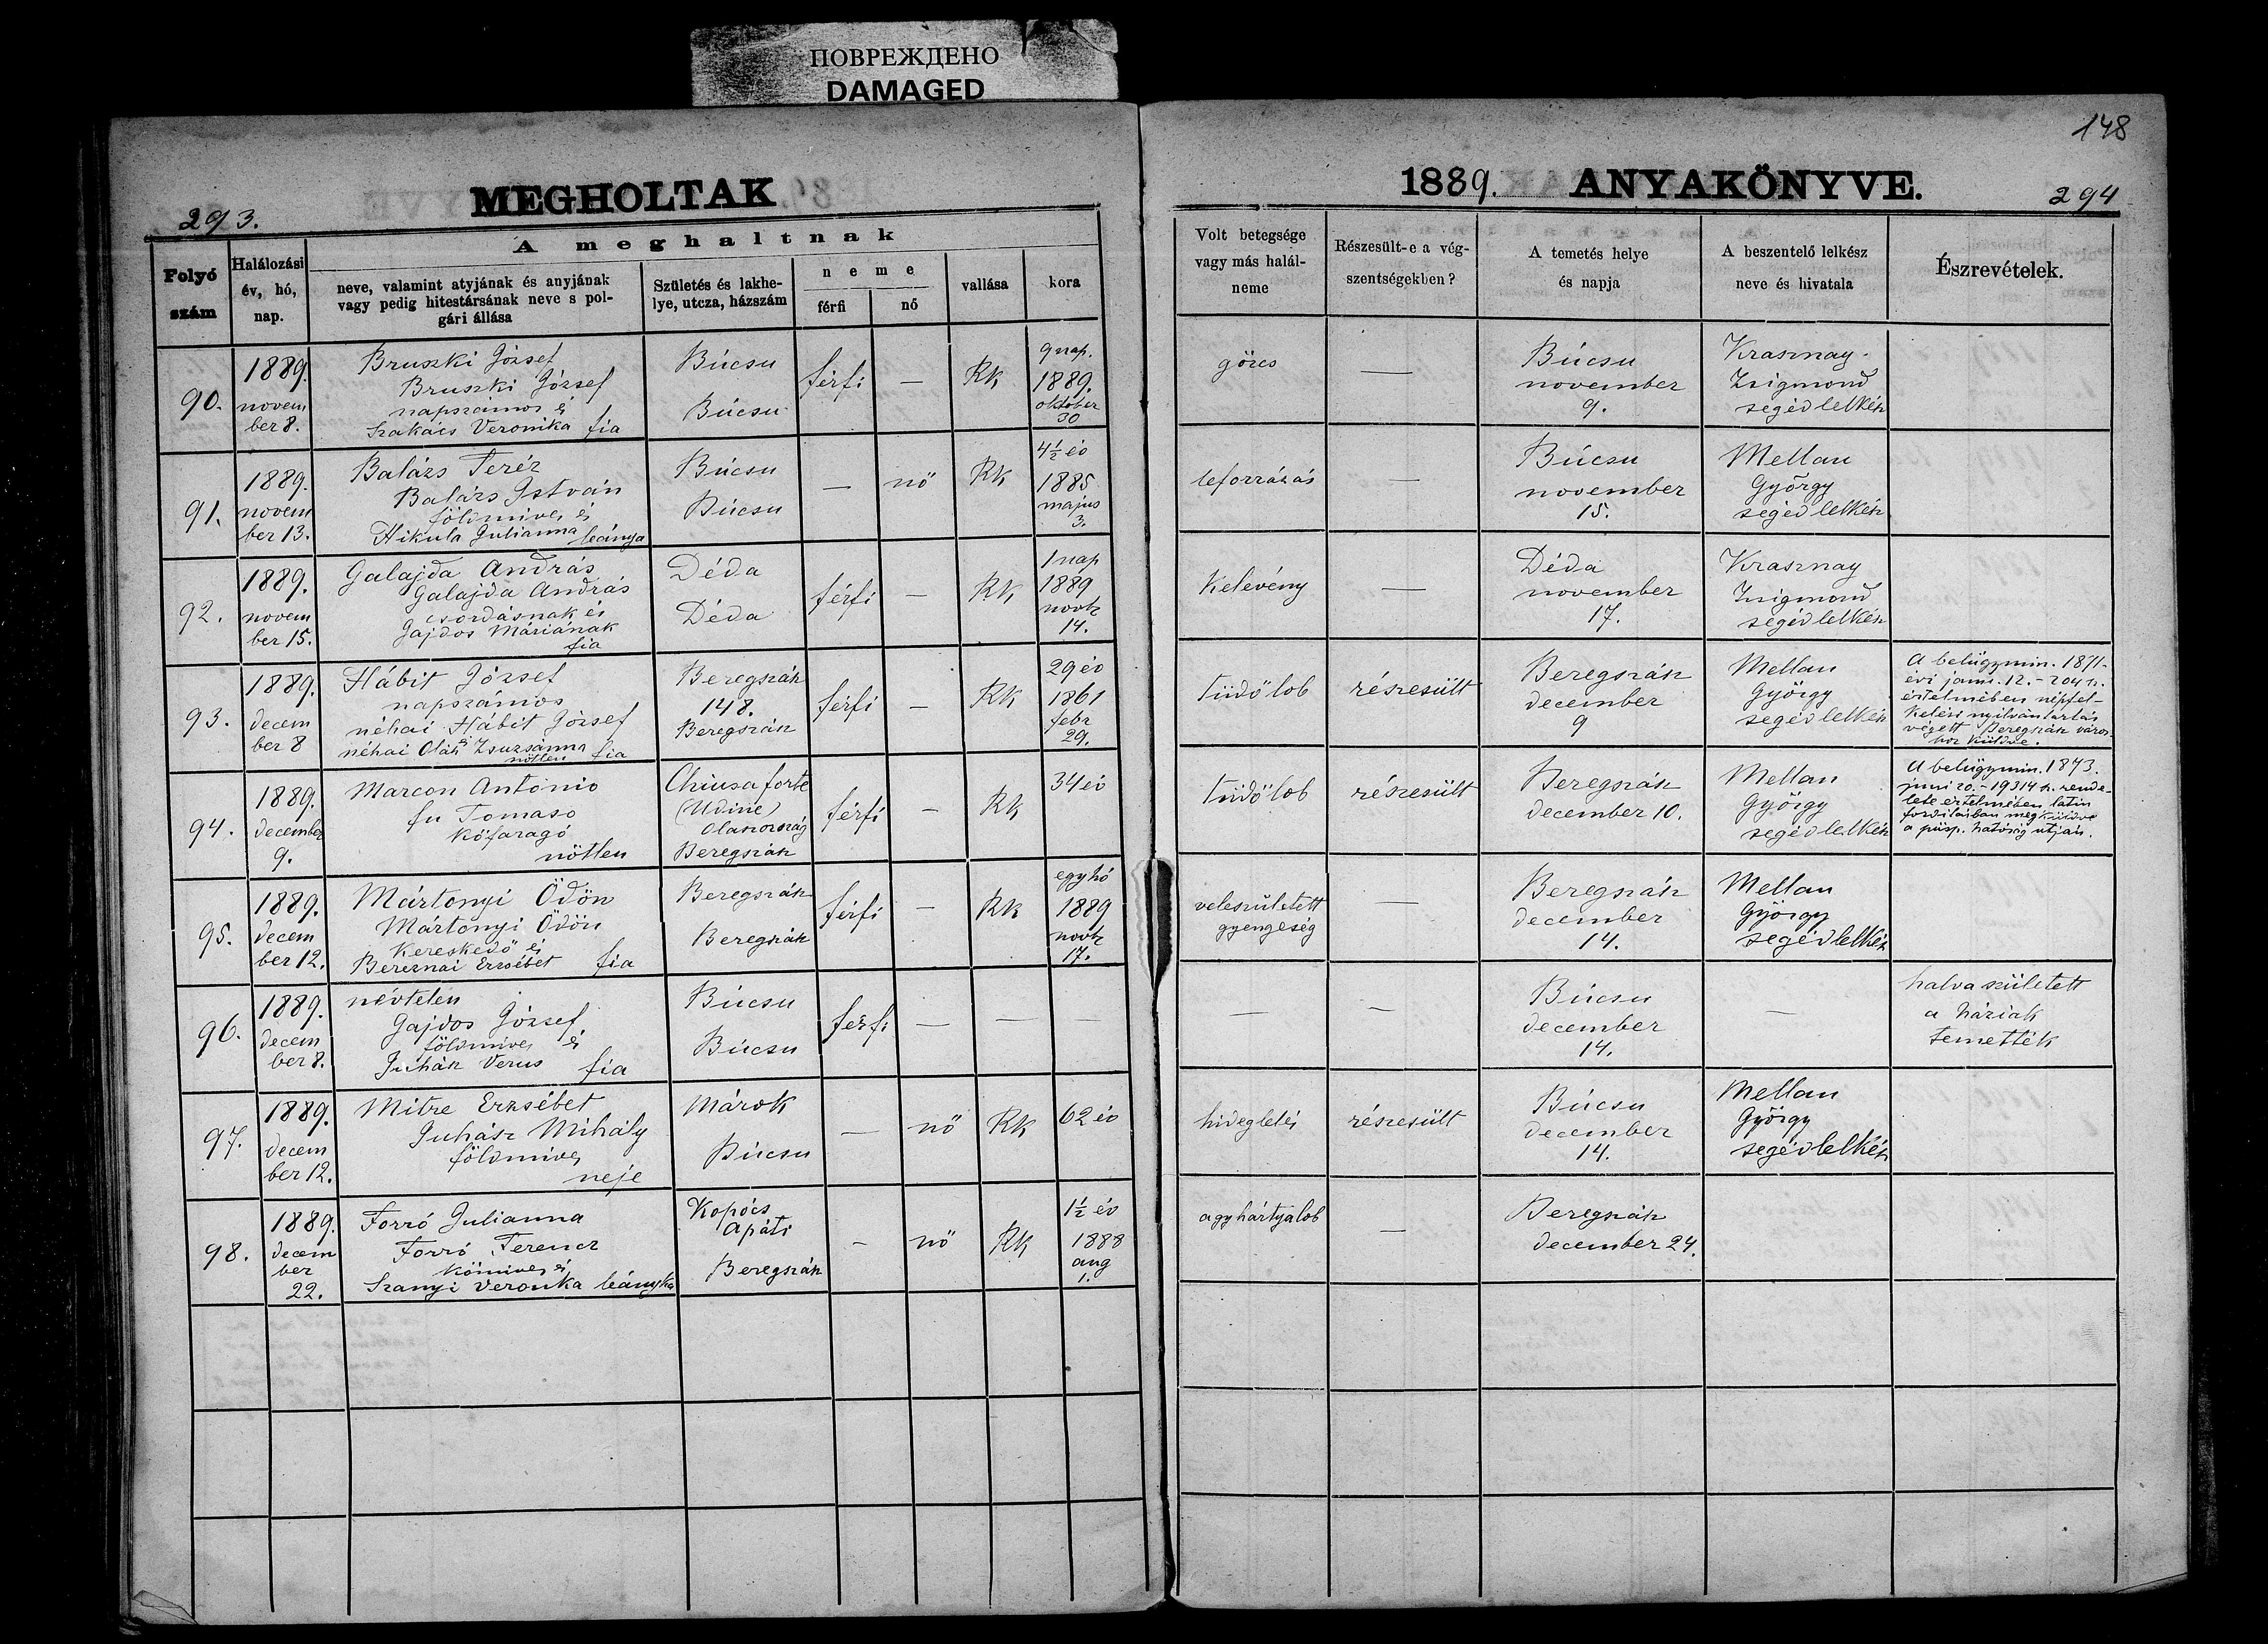 ПОВРЕЖДЕНО
DAMAGED
148
293.
MEGHOLTAK
1889. ANYAKÖNYVE.
294
Folyó szám
Halálozási év, hó, nap.
A meghaltnak
neve, valamint atyjának és anyjának
vagy pedig hitestársának neve s pol-
gári állása
Születés és lakhe-
lye, utcza, házszám
neme
férfi
nő
vallása
kora
Volt betegsége
vagy más halál-
neme
Részesült-e a vég-
szentségekben?
A temetés helye
és napja
A beszentelő lelkész
neve és hivatala
Észrevételek.
90.
1889.
novem
ber 8.
Bruszki József
Bruszki József
napszámos és
Szakács Veronika fia
Búcsu
Búcsu
férfi
—
RK
9 nap.
1889.
október
30
görcs
—
Búcsu
november
9.
Krasznay
Zsigmond
segédlelkész
91.
1889.
novem
ber 13.
Balázs Teréz
Balázs István
földmives és
Hikula Julianna leánya
Búcsu
Búcsu
—
nő
RK
4½ év
1885
május
3.
leforrázás
—
Búcsu
november
15.
Mellan
György
segédlelkész
92.
1889.
novem
ber 15.
Galajda András
Galajda András
csordásnak és
Gajdos Máriának
fia
Déda
Déda
férfi
—
RK
1 nap
1889
novbr
14.
Kelevény
—
Déda
november
17.
Krasznay
Zsigmond
segédlelkész
93.
1889.
decem
ber 8
Hábit József
napszámos
néhai Hábit József
néhai Oláh és Zsuzsánna
nőtlen fia
Beregszász
148.
Beregszász
férfi
—
RK
29 év
1861
febr
29.
Tüdőlob
részesült
Beregszász
december
9
Mellan
György
segédlelkész
A belügymin. 1871-
évi janu. 12. - 204 sz.
értelmében népfel-
kelési nyilvántartás
végett Beregszász város-
hoz küldve.
94.
1889.
december
9.
Marcon Antonio
fu Tomaso
kőfaragó
nőtlen
Chiusa forte
(Udine)
Olaszország
Beregszász
férfi
—
RK
34 év
Tüdőlob
részesült
Beregszász
december 10.
Mellan
György
segédlelkész
A belügymin. 1873.
juni 20. - 19314 sz. rende-
lete értelmében latin
fordításban megküldve
a püsp. hatóság utján.
95.
1889.
decem
ber 12.
Mártonyi Ödön
Mártonyi Ödön
Kereskedő és
Bereznai Erzsébet fia
Beregszász
Beregszász
férfi
—
RK
egy hó
1889
novbr
17.
veleszületett
gyengeség
—
Beregszász
december
14.
Mellan
György
segédlelkész
96.
1889.
decem
ber 8.
névtelen
Gajdos József
földmives és
Juhász Verus fia
Búcsu
Búcsu
férfi
—
—
—
—
—
Búcsu
december
14.
—
halva született
a háziak
temették
97.
1889.
decem
ber 12.
Mitre Erzsébet
Juhász Mihály
földmives
neje
Márok
Búcsu
—
nő
RK
62 év
hideglelés
részesült
Búcsu
december
14.
Mellan
György
segédlelkész
98.
1889.
decem
ber
22.
Forró Julianna
Forró Ferencz
kőmives és
Szanyi Veronka leányka
Kopócs
Apáti
Beregszász
—
nő
RK
1½ év
1888
aug
1.
agyhártyalob
—
Beregszász
december 24.